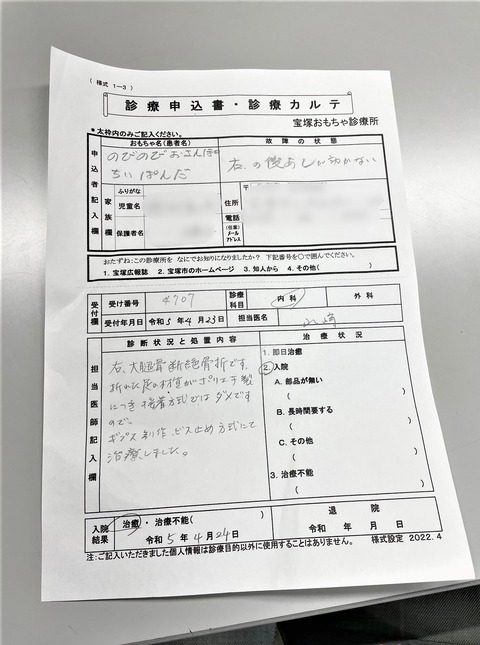 （様式 1－3）
診療申込書・診療カルテ
宝塚おもちゃ診療所
＊太枠内のみご記入ください。
申込者記入欄
おもちゃ名(患者名)
故障の状態
のびのびおさんぽ
ちいぱんだ
右の後あしが動かない
家族欄
ふりがな
児童名
保護者名
住所
〒
電話
(任意)
メール
アドレス
おたずね:この診療所を なにでお知りになりましたか？ 下記番号を○で囲んでください。
1. 宝塚広報誌 2. 宝塚市のホームページ 3. 知人から 4. その他( )
受付欄
受け番号
4707
診療科目
内科
外科
受付年月日
令和5年4月23日
担当医名
担当医師記入欄
診断状況と処置内容
治療状況
右、大腿骨断絶骨折です。
折れた足の材質がポリエチ製
につき接着方式ではダメです
ので。
ギプス制作、ビス止め方式にて
治療しました。
1. 即日治癒
2. 入院
A. 部品が無い
( )
B. 長時間要する
( )
C. その他
( )
3. 治療不能
( )
入院結果
治癒・治療不能( )
令和5年4月24日
退院
令和 年 月 日
注:ご記入いただきました個人情報は診療目的以外に使用することはありません。
様式設定 2022. 4